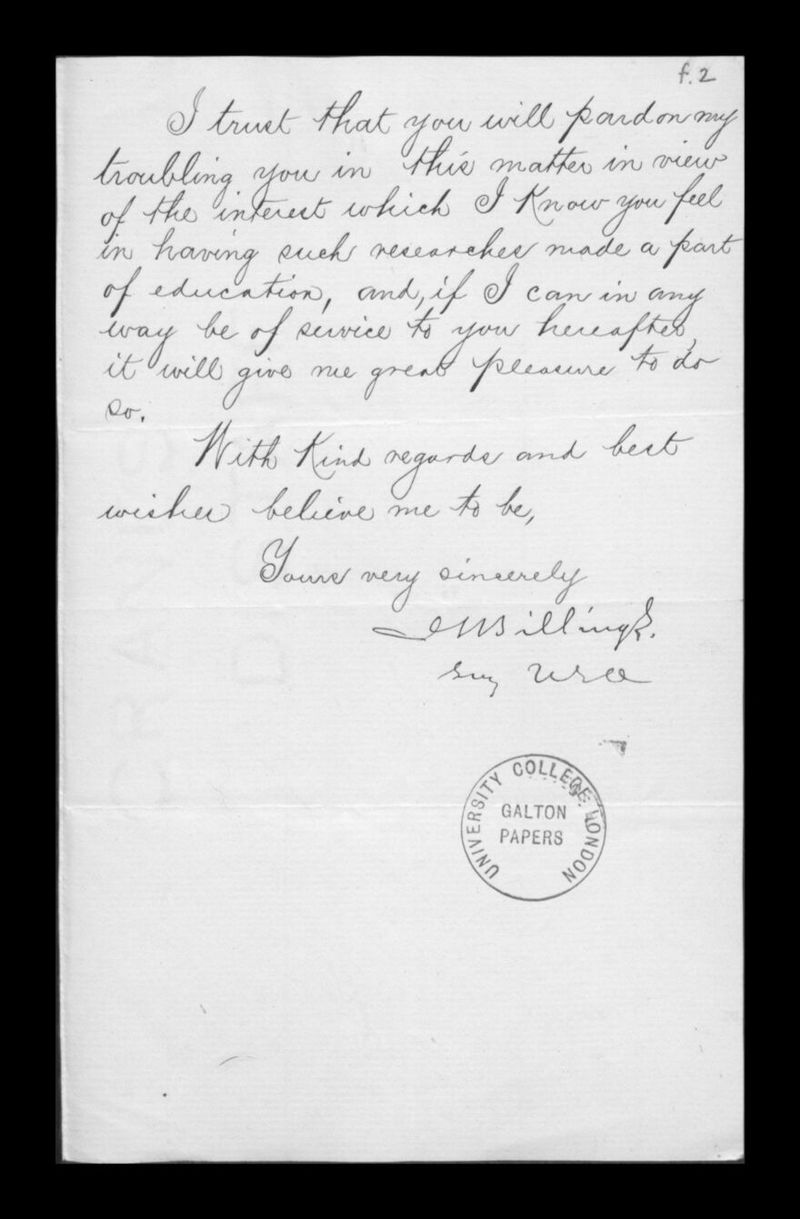 f.2
I trust that you will pardon my
troubling you in this matter in view
of the interest which I Know you feel
in having such researches made a part
of education, and, if I can in any
way be of service to you hereafter,
it will give me great pleasure to do
so.
With Kind regards and best
wishes believe me to be,
Yours very sincerely
J S Billings.
Surg USA
UNIVERSITY COLLEGE LONDON
GALTON
PAPERS